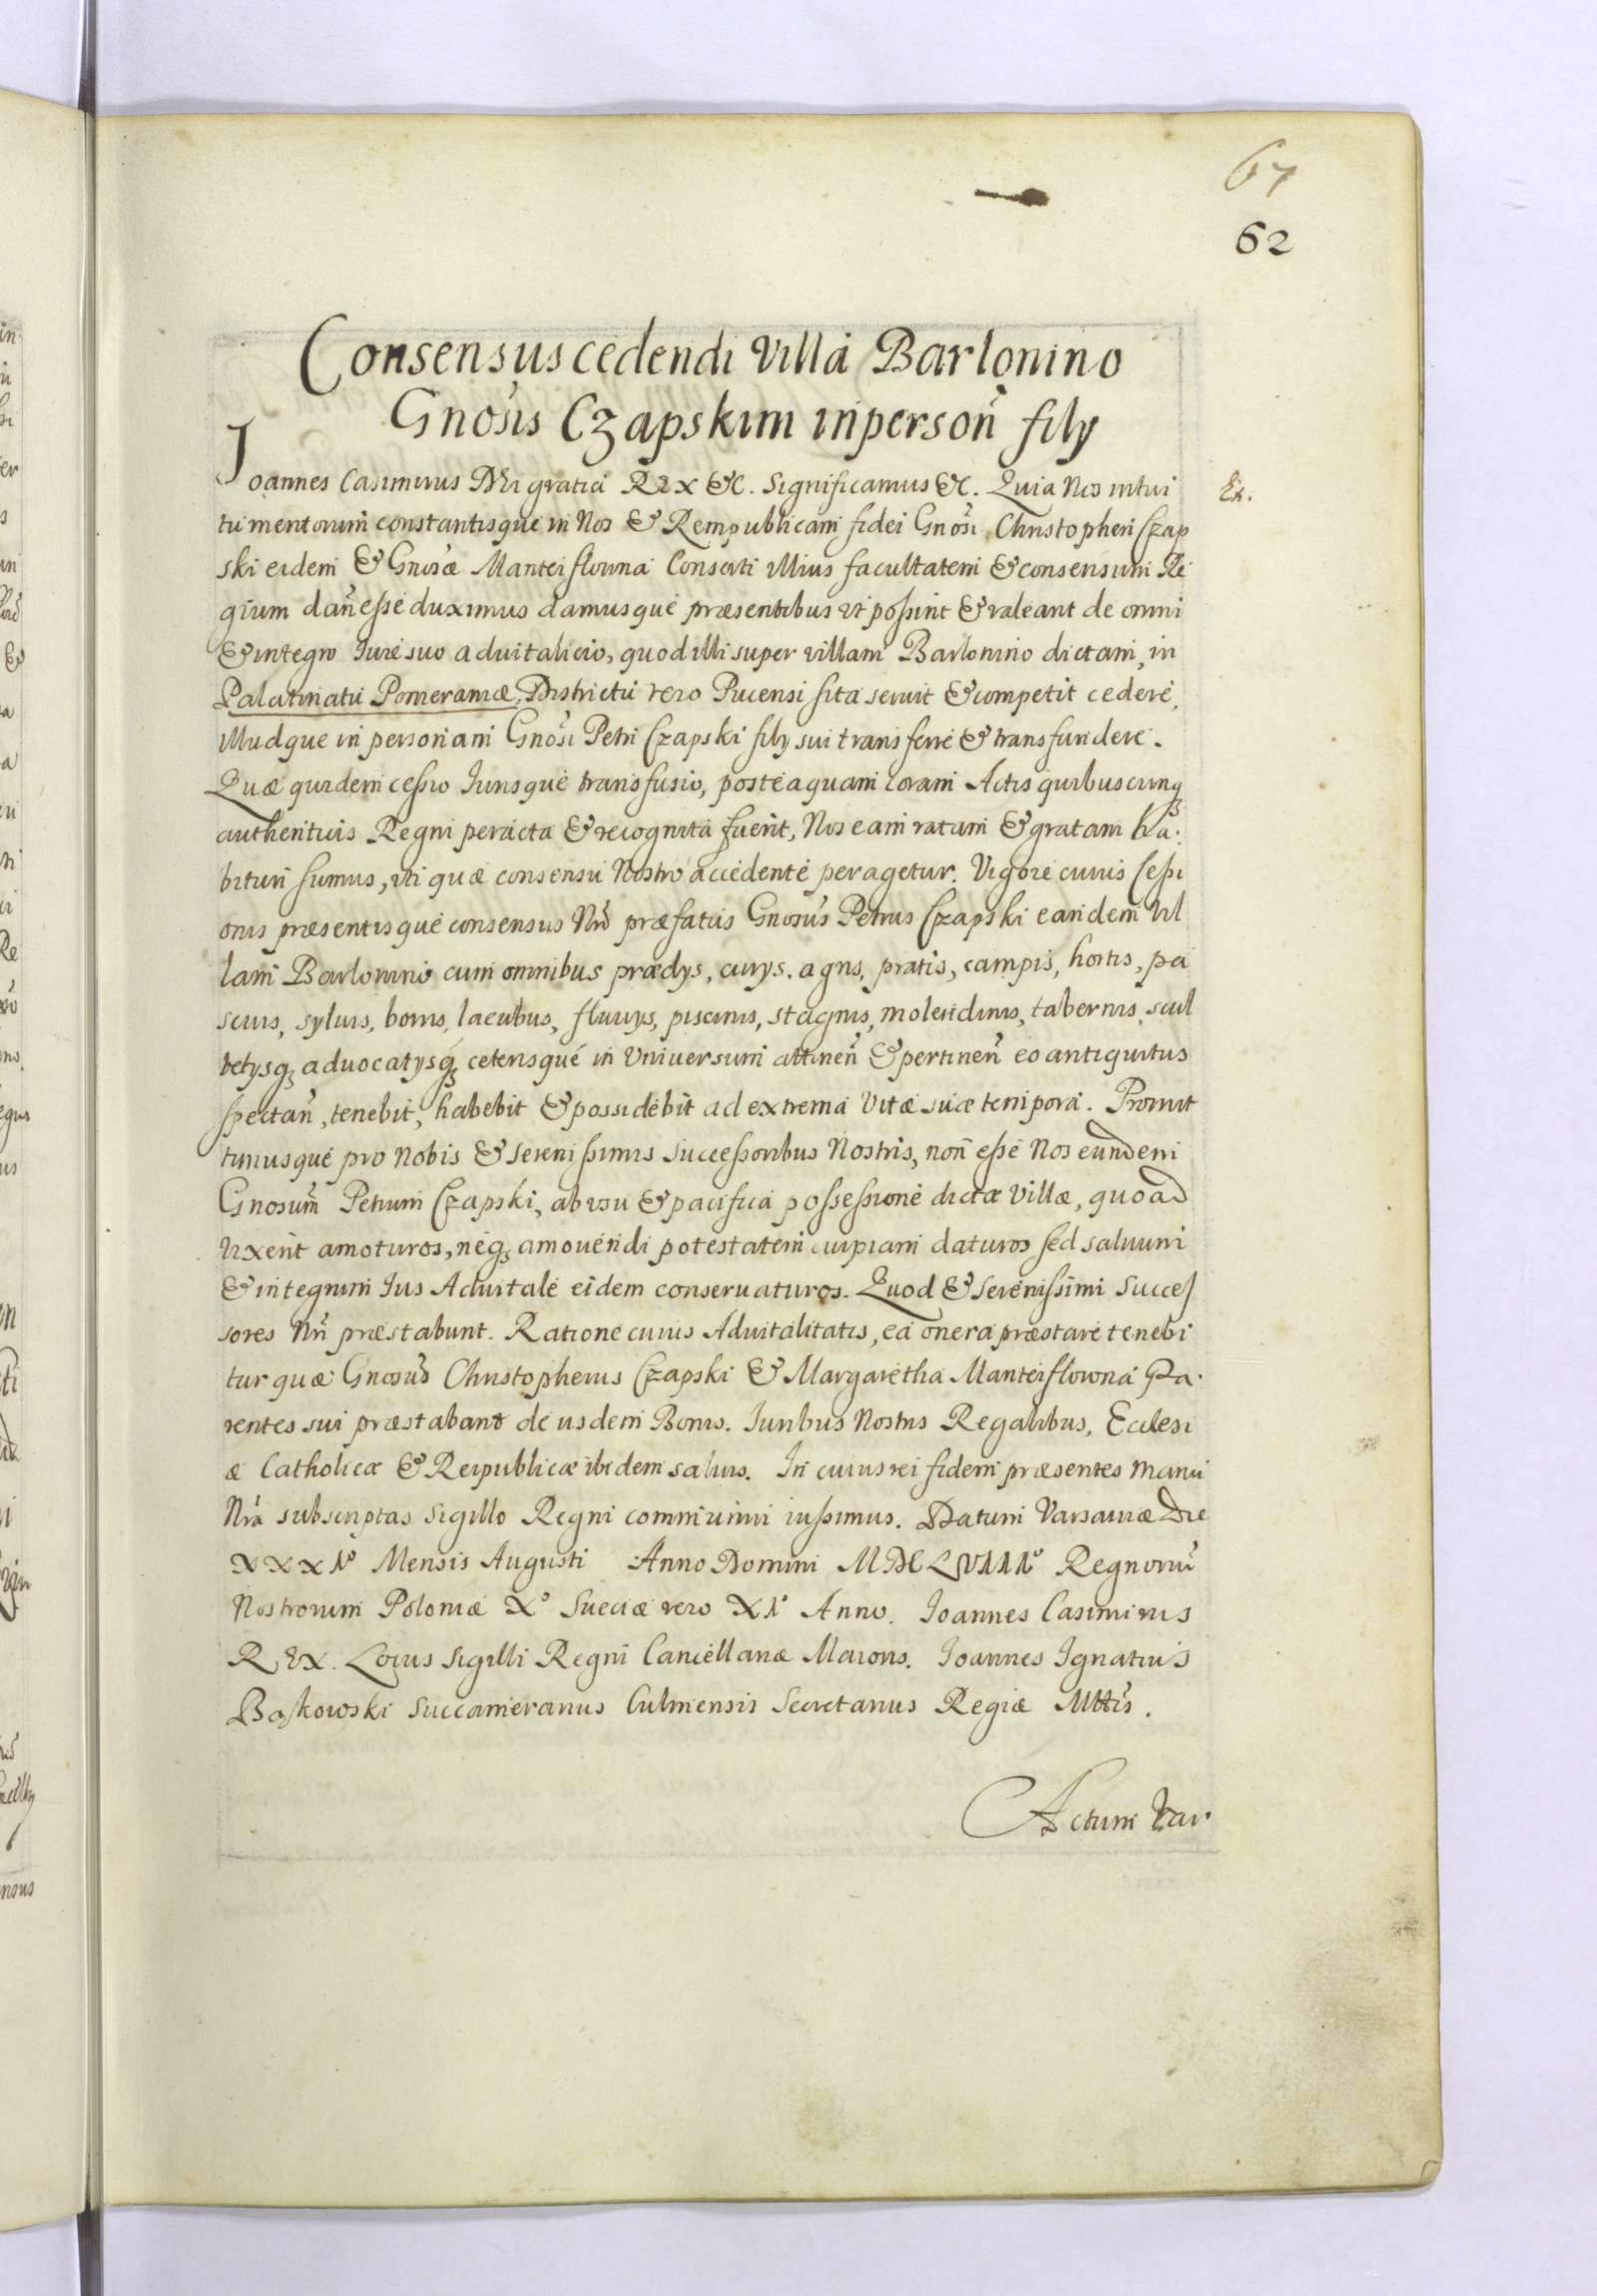 67
62
Consensus cedendi Villa Barlonino
Gnosis Czapskim in person filij
Ioannes Casimirus Dei gratia REX &c. Significamus &c. Quia Nos intui
Ex.
tu meritorum constantisque in Nos & Rempublicam fidei Gnosi Christopheri Czap
ski eidem & Gnosæ Manteiflowna Consorti illius facultatem & consensum Re
gium dañ esse duximus damusque præsentibus vt possint & valeant de omni
& integro Iure suo aduitalicio, quod illi super villam Barlonino dictam, in
Palatinatu Pomeraniæ, Districtu vero Pucensi sita seruit & competit cedere,
illudque in personam Gnosi Petri Czapski filij sui transferre & transfundere.
Quæ quidem cessio Iurisque transfusio, posteaquam coram Actis quibuscunq
authenticis Regni peracta & recognita fuerit, Nos eam ratam & gratam ha:
bituri sumus, vti quæ consensu Nostro accedente peragetur. Vigore cuius Cessi
onis præsentisque consensus Nri præfatus Gnosus Petrus Czapski eandem Vil
lam Barlonino cum omnibus prædijs, curijs, agris, pratis, campis, hortis, pa
scuis, syluis, boris, lacubus, fluuijs, piscinis, stagnis, molendinis, tabernis, scul
tetijsq aduocatijsq ceterisque in Vniuersum attineñ & pertineñ eo antiquitus
spectañ, tenebit, habebit & possidebit ad extrema Vitæ suæ tempora. Promit
timusque pro Nobis & Serenissimis Successoribus Nostris, non esse Nos eundem
Gnosum Petrum Czapski, ab vsu & pacifica possessione dictæ Villæ, quoad
vixerit amoturos, neq amouendi potestatem cuipiam daturos sed saluum
& integrum Ius Aduitale eidem conseruaturos. Quod & Serenissimi Succes
sores Nri præstabunt. Ratione cuius Aduitalitatis, ea onera præstare tenebi
tur quæ Gnosus Christopherus Czapski & Margaretha Manteiflowna Pa:
rentes sui præstabant de ijsdem Bonis. Iuribus Nostris Regalibus, Ecclesi
æ Catholicæ & Reipublicæ ibidem saluis. In cuius rei fidem præsentes Manu
Nra subscriptas Sigillo Regni communiri iussimus. Datum Varsauiæ Die
XXXIº Mensis Augusti Anno Domini MDCLVIIIº Regnorum
Nostrorum Poloniæ Xº Sueciæ vero XIº Anno. Ioannes Casimirus
REX. Locus Sigilli Regni Cancellariæ Maioris. Ioannes Ignatius
Bąkowski Succamerarius Culmensis Secretarius Regiæ Mttis.
Actum Var